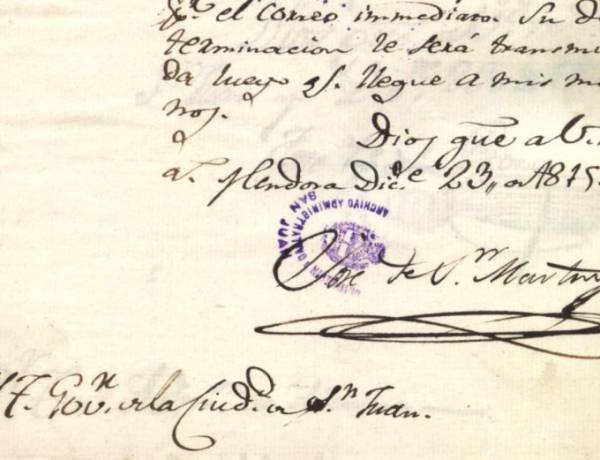 el correo immediato. Su de
terminacion le será transmi
da luego qe. llegue a mis ma
nos.
Dios gue a V.
as. Mendoza Dice. 23,, de 1815.
SAN JUAN
ARCHIVO ADMINISTRATIVO
José de Sn. Martin
T. Govn. de la Ciudd. de Sn. Juan.